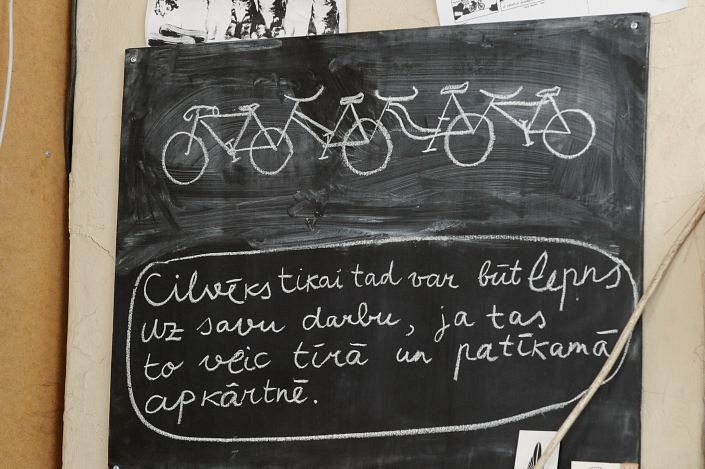 Cilvēks tikai tad var būt lepns
uz savu darbu, ja tas
to veic tīrā un patīkamā
apkārtnē.